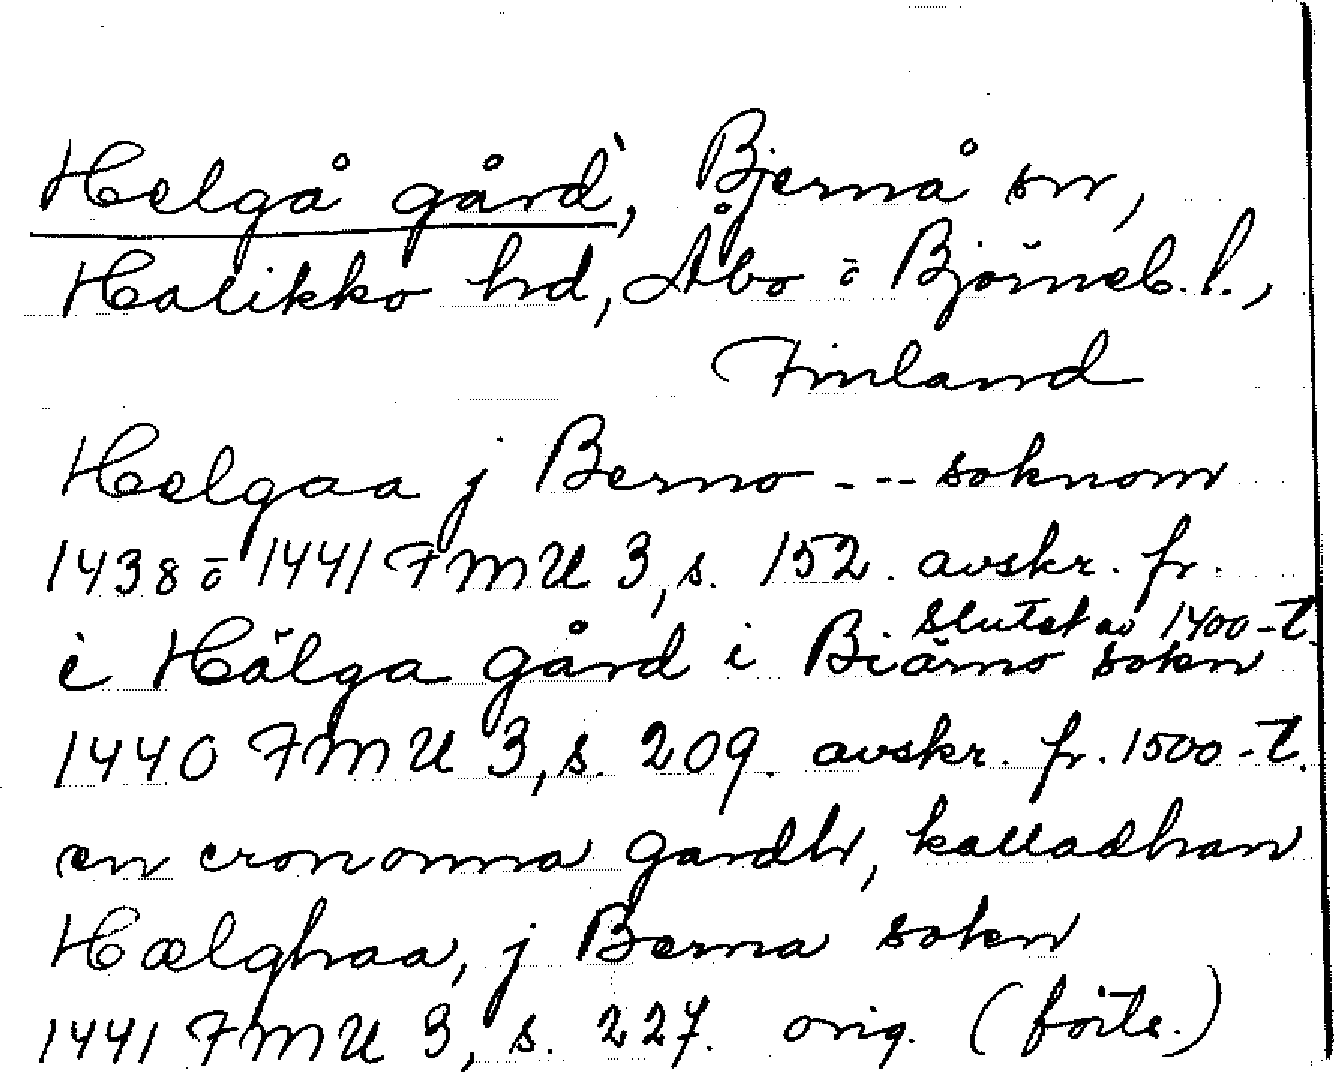 Helgå gård, Bjernå sn,
Halikko hd, Åbo o Björneb. l.,
Finland
Helgaa j Berno --- soknom
1438 o 1441 FMU 3, s. 152. avskr. fr.
slutet av 1400-t.
i Hälga gård i Biärno sokn
1440 FMU 3, s. 209. avskr. fr. 1500-t.
en cronomna gardh, kalladhan
Hælghaa, j Berna sokn
1441 FMU 3, s. 227. orig. (forts.)